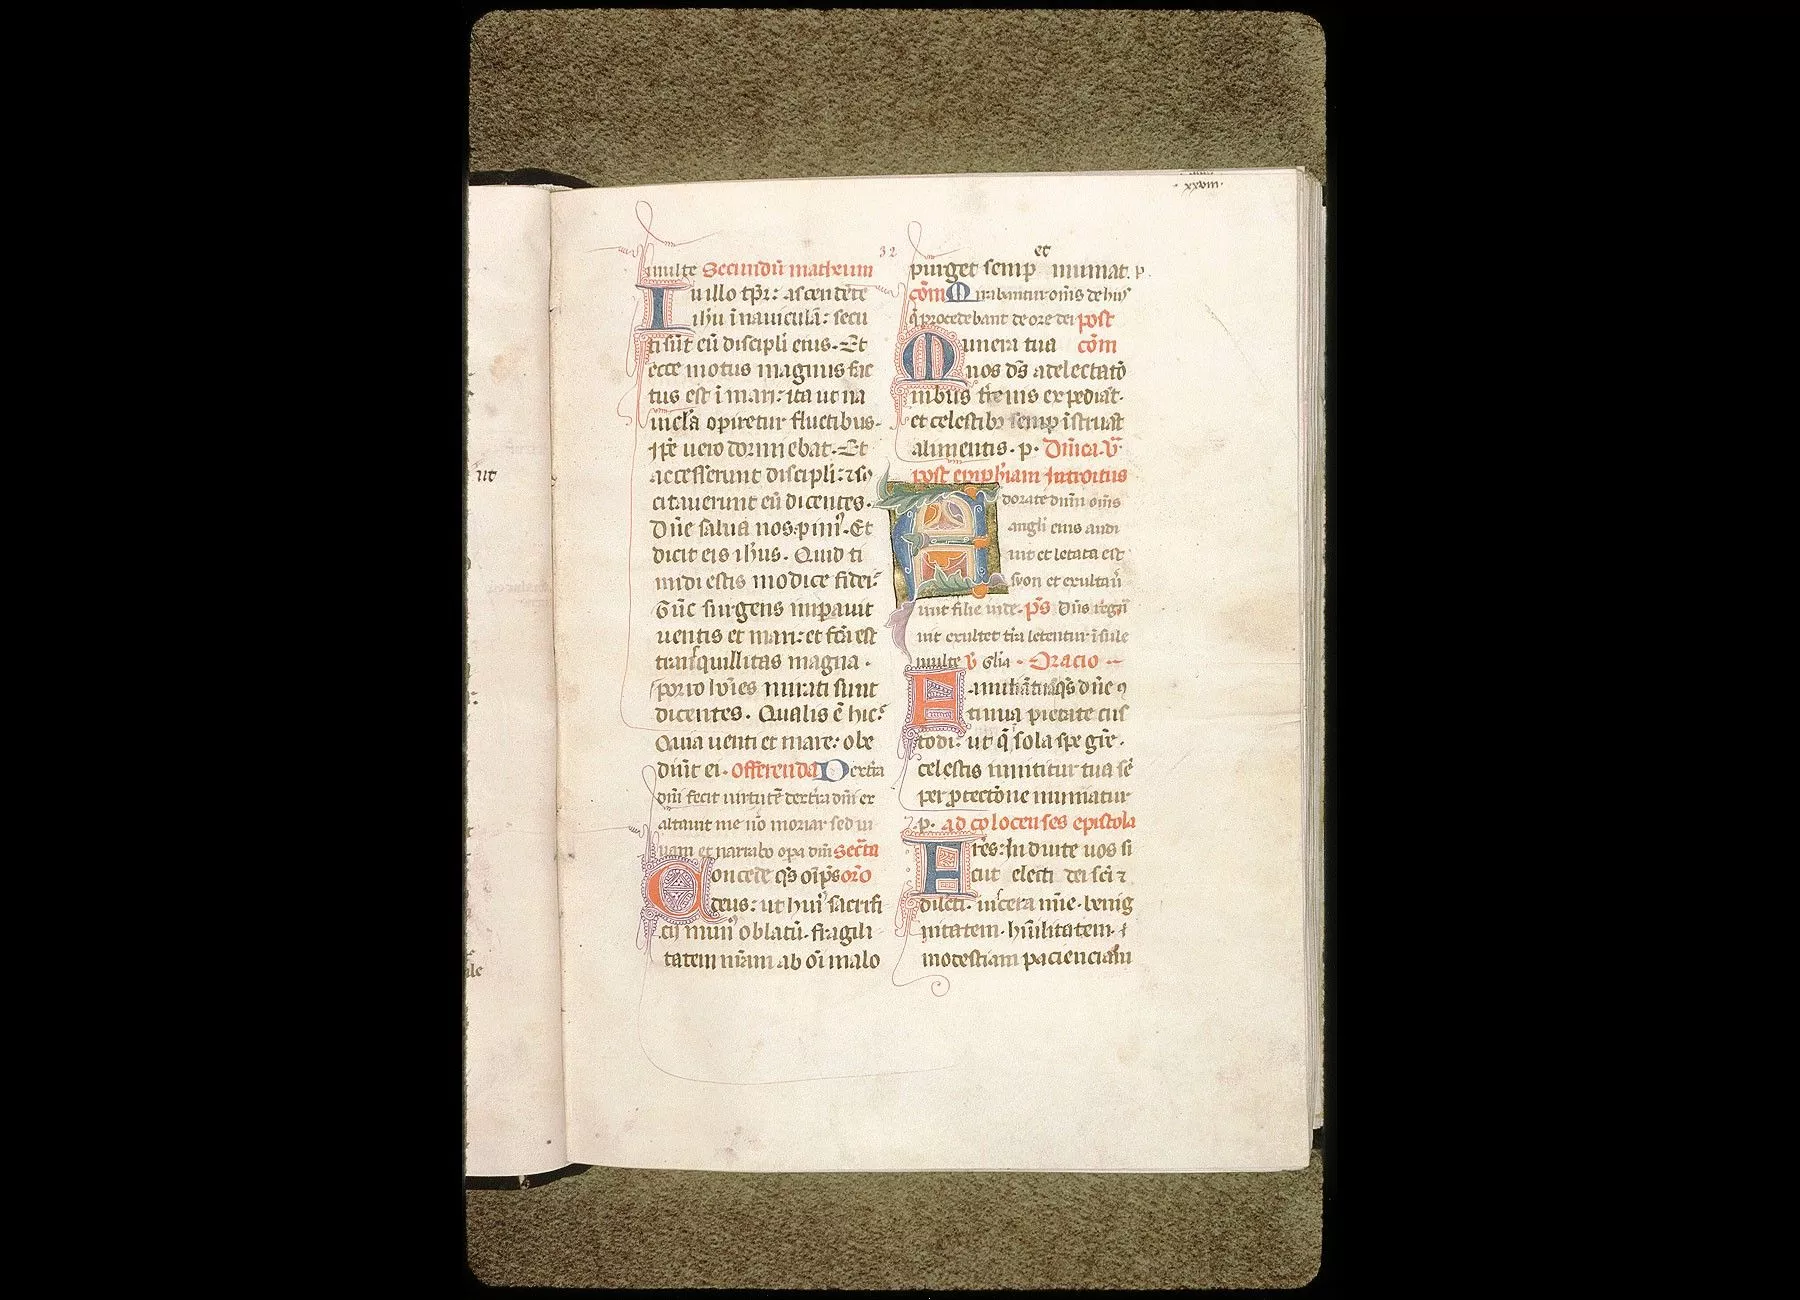 xxviii
32
multe Secundū matheum
In illo tp̄r: ascendēte
ihū ī nauiculā: secu
ti sūt eū discipli eius. Et
ecce motus magnus fac
tus est ī mari: ita ut na
uicl̄a opiretur fluctibus.
ip̄e uero dormiebat. Et
accesserunt discipli: ⁊ su
citauerunt eū dicentes.
Dn̄e salua nos: pim᷒. Et
dicit eis ihūs. Quid ti
midi estis modice fidei?
Tūc surgens inpauit
uentis et mari: et fcā est
tranquillitas magna.
porro hoīes mirati sunt
dicentes. Qualis ē hic?
Quia uenti et mare: obe
diūt ei. Offerenda Dextĩa
dn̄i fecit uirtutē dextĩa dn̄i ex
altauit me nō moriar sed ui
uam et narrabo opa dn̄i Secr̄ta
Concede qs̄ oīps̄ oro
deus: ut hui᷒ sacrifi
cij mun᷒ oblatū. fragili
tatem nr̄am ab oī malo
et
purget semp muniat. p.
cōm Mirabantur om̄s de hiis
q̄ procedebant de ore dei post
Munera tua cōm
nos dn̄s a delectatō
nibus t̄renis expediāt.
et celestibꝫ semp īstruāt
alimentis. p. Dn̄ica. v̄
post epiphīam Introitus
Adorate dn̄m om̄s
angl̄i eius audi
uit et letata est
syon et exultaū
unt filie iude. ps̄ Dn̄s regn̄
uit exultet tr̄a letentur īsule
multe v̄ Gl̄ia. Oracio
Familiā tuā qs̄ dn̄e ꝯ
tinua pietate cus
todi: ut q̄ sola spe gr̄e.
celestis innititur tua sē
per ꝓtectōne muniatur
p. ad colocenses epistola
Fres: Induite uos si
cut electi dei sc̄i ⁊
dilcti. uiscera mīe. benig
nitatem. hūilitatem. ⁊
modestiam pacienciam
ut